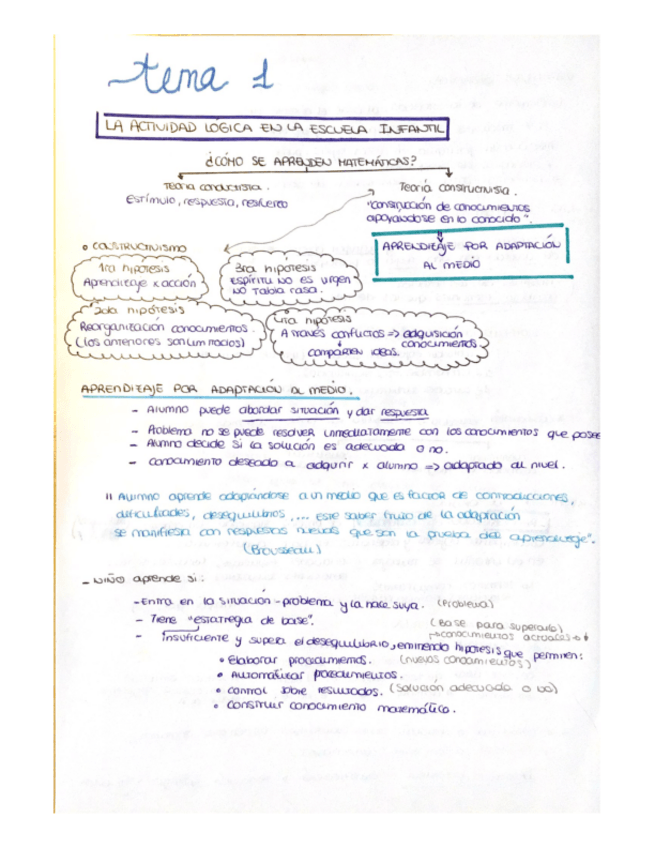 tema 1
LA ACTIVIDAD LÓGICA EN LA ESCUELA INFANTIL
¿CÓMO SE APRENDEN MATEMÁTICAS?
Teoría conductista.
Estímulo, respuesta, refuerzo
Teoría constructivista.
"construcción de conocimientos
apoyándose en lo conocido".
APRENDIZAJE POR ADAPTACIÓN
AL MEDIO
CONSTRUCTIVISMO
1ra hipótesis
Aprendizaje x acción
3ra hipótesis
ESPÍRITU NO ES VIRGEN
NO Tabla rasa.
2da hipótesis
Reorganización conocimientos.
(los anteriores son limitados)
4ta hipótesis
A través conflictos => adquisición
conocimientos
comparten ideas.
APRENDIZAJE POR ADAPTACIÓN al MEDIO.
- Alumno puede abordar situación y dar respuesta
- Problema no se puede resolver inmediatamente con los conocimientos que posee
- Alumno decide si la solución es adecuada o no.
- conocimiento deseado a adquirir x alumno => adaptado al nivel.
" Alumno aprende adaptándose a un medio que es factor de contradicciones,
dificultades, desequilibrios,... este saber fruto de la adaptación
se manifiesta con respuestas nuevas que son la prueba del aprendizaje".
(Brousseau)
- NIÑO aprende si:
- Entra en la situación-problema y la hace suya. (Problema)
- Tiene "estrategia de base".
(Base para superarlo)
conocimientos actuales
- Insuficiente y supera el desequilibrio, emitiendo hipótesis que permiten:
• Elaborar procedimientos. (nuevos conocimientos)
• Automatizar procedimientos.
• control sobre resultados. (Solución adecuada o no)
• Construir conocimiento matemático.